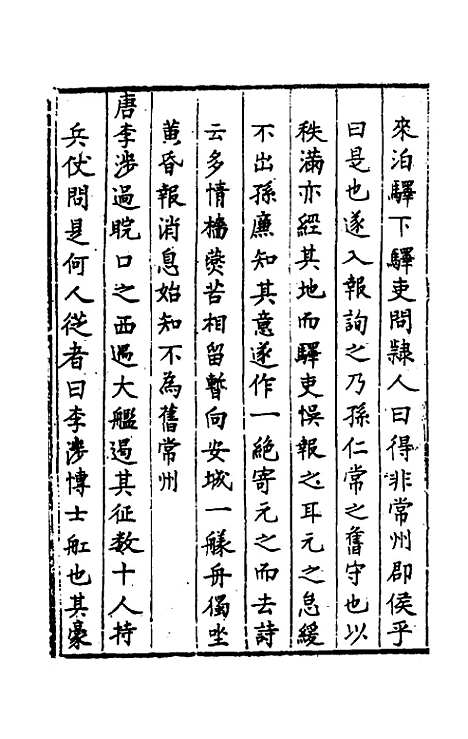 來泊驛下驛吏問隸人曰得非常州郡侯乎
曰是也遂入報詢之乃孫仁常之舊守也以
秩滿亦經其地而驛吏悞報之耳元之怠緩
不出孫廉知其意遂作一絶寄元之而去詩
云多情檣㷀苦相留暫向安城一艤舟獨坐
黄昏報消息始知不為舊常州
唐李涉過睆口之西遇大艦遏其征数十人持
兵仗問是何人從者曰李涉博士舡也其豪